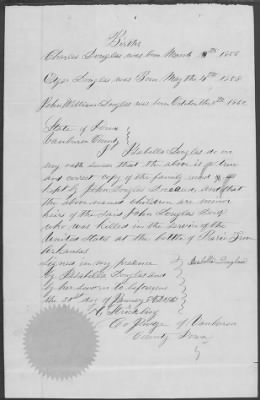 Births
Charles Douglas was born March 1856
Edgar Douglas was Born May the 4th 1858
John William Douglas was born October the 8th 1860
State of Iowa
Vanburen County
I Isabella Douglas do on
my oath swear that the above is a true
and correct copy of the family record
kept by John Douglas Deceased, and that
the above named children are minor
heirs of the said John Douglas
who was killed in the service of the
United States at the battle of
Arkansas
Signed in my presence Isabella Douglas
by Isabella Douglas and
by her sworn to before me
the 21st day of January
Co Judge of Vanburen
County Iowa